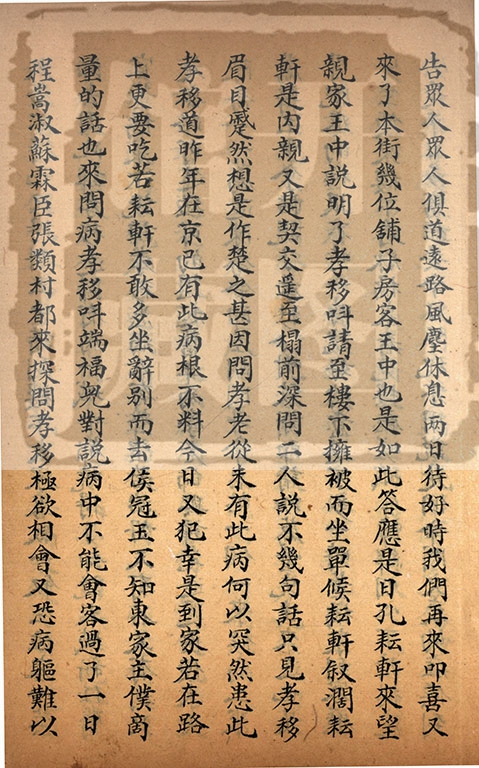 告眾人眾人俱道遠路風塵休息两日待好時我們再來叩喜又
來了本街幾位舖子房客王中也是如此答應是日孔耘軒來望
親家王中説明了孝移呌請至樓下擁被而坐單候耘軒叙濶耘
軒是内親又是契交遥至榻前深問二人説不幾句話只見孝移
眉目蹙然想是作楚之甚因問孝老從未有此病何以突然患此
孝移道昨年在京已有此病根不料今日又犯幸是到家若在路
上更要吃苦耘軒不敢多坐辭别而去侯冠玉不知東家主僕啇
量的話也來問病孝移呌端福兒對説病中不能會客過了一日
程嵩淑蘇霖臣張類村都來探問孝移極欲相會又恐病軀難以